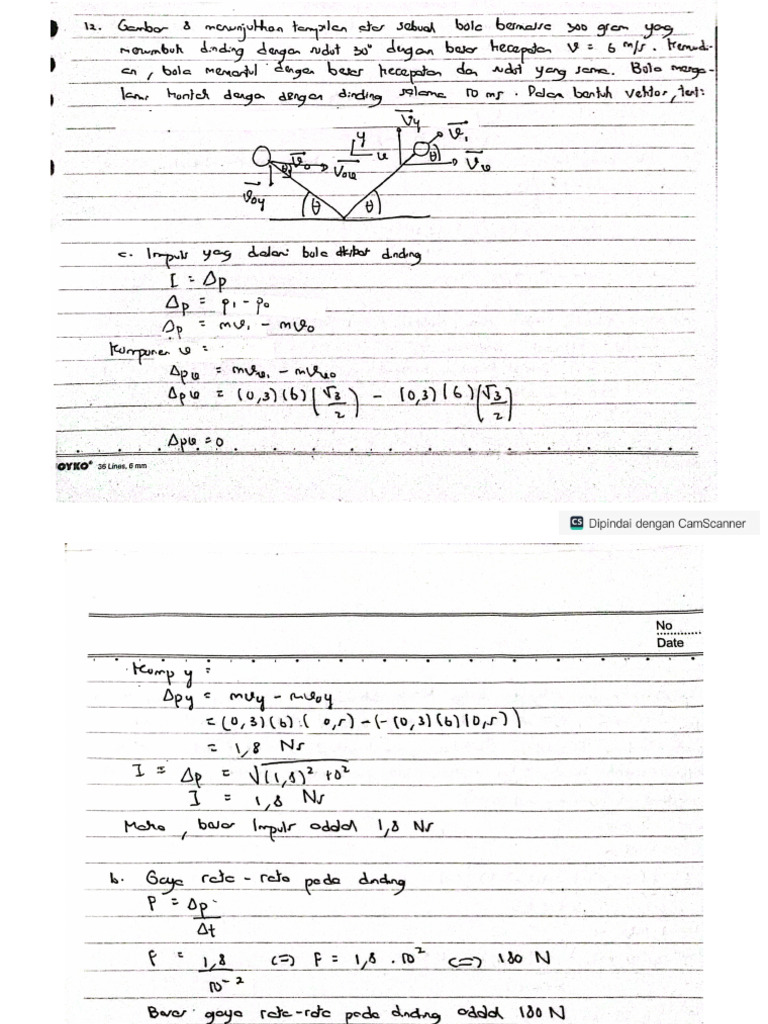 12. Gambar 8 menunjukkan tampilan atas sebuah bola bermassa 300 gram yang
menumbuk dinding dengan sudut 30° dengan besar kecepatan v = 6 m/s. Kemudi-
an, bola memantul dengan besar kecepatan dan sudut yang sama. Bola menga-
lami kontak dengan dinding selama 10 ms. Dalam bentuk vektor,
Vy
v₁
y
v₀
θ
V₀x
x
θ
Vx
v₀y
θ
θ
a. Impuls yang dialami bola akibat dinding
I = Δp
Δp = p₁ - p₀
Δp = mv₁ - mv₀
Komponen x :
Δpx = mvx₁ - mvx₀
Δpx = (0,3)(6)(√3/2) - (0,3)(6)(√3/2)
Δpx = 0
OYKO® 36 Lines, 6 mm
CS Dipindai dengan CamScanner
No
Date
Komp y :
Δpy = mvy - mv₀y
= (0,3)(6)(0,5) - (-(0,3)(6)(0,5))
= 1,8 Ns
I = Δp = √(1,8)² + 0²
I = 1,8 Ns
Maka, besar Impuls adalah 1,8 Ns
b. Gaya rata-rata pada dinding
F = Δp/Δt
F = 1,8/10⁻² <=> F = 1,8 . 10² <=> 180 N
Besar gaya rata-rata pada dinding adalah 180 N